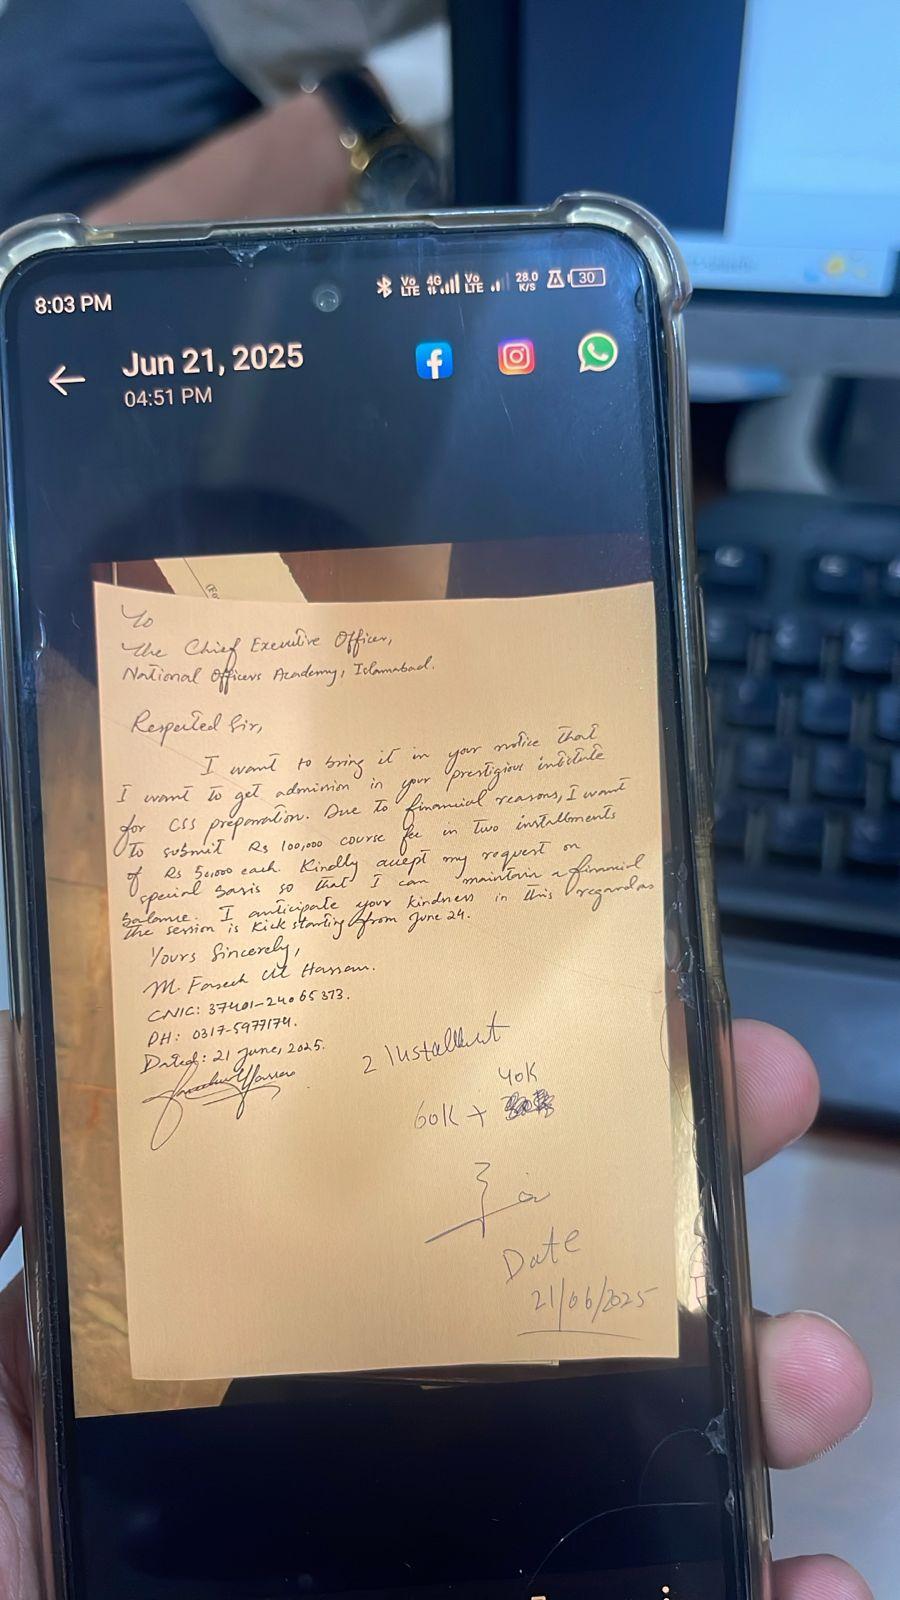 8:03 PM
Vo LTE 4G Vo LTE 28.0 K/S 30
Jun 21, 2025
04:51 PM
To
The Chief Executive Officer,
National Officers Academy, Islamabad.
Respected Sir,
I want to bring it in your notice that
I want to get admission in your prestigious institute
for CSS preparation. Due to financial reasons, I want
to submit Rs 100,000 course fee in two installments
of Rs 50,000 each. Kindly accept my request on
special basis so that I can maintain a financial
balance. I anticipate your kindness in this regard as
the session is kick starting from June 24.
Yours Sincerely,
M. Faseeh Ul Hassan.
CNIC: 37401-24065373.
PH: 0317-5977174.
Dated: 21 June, 2025.
2 Installment
40K
60K +
Date
21/06/2025